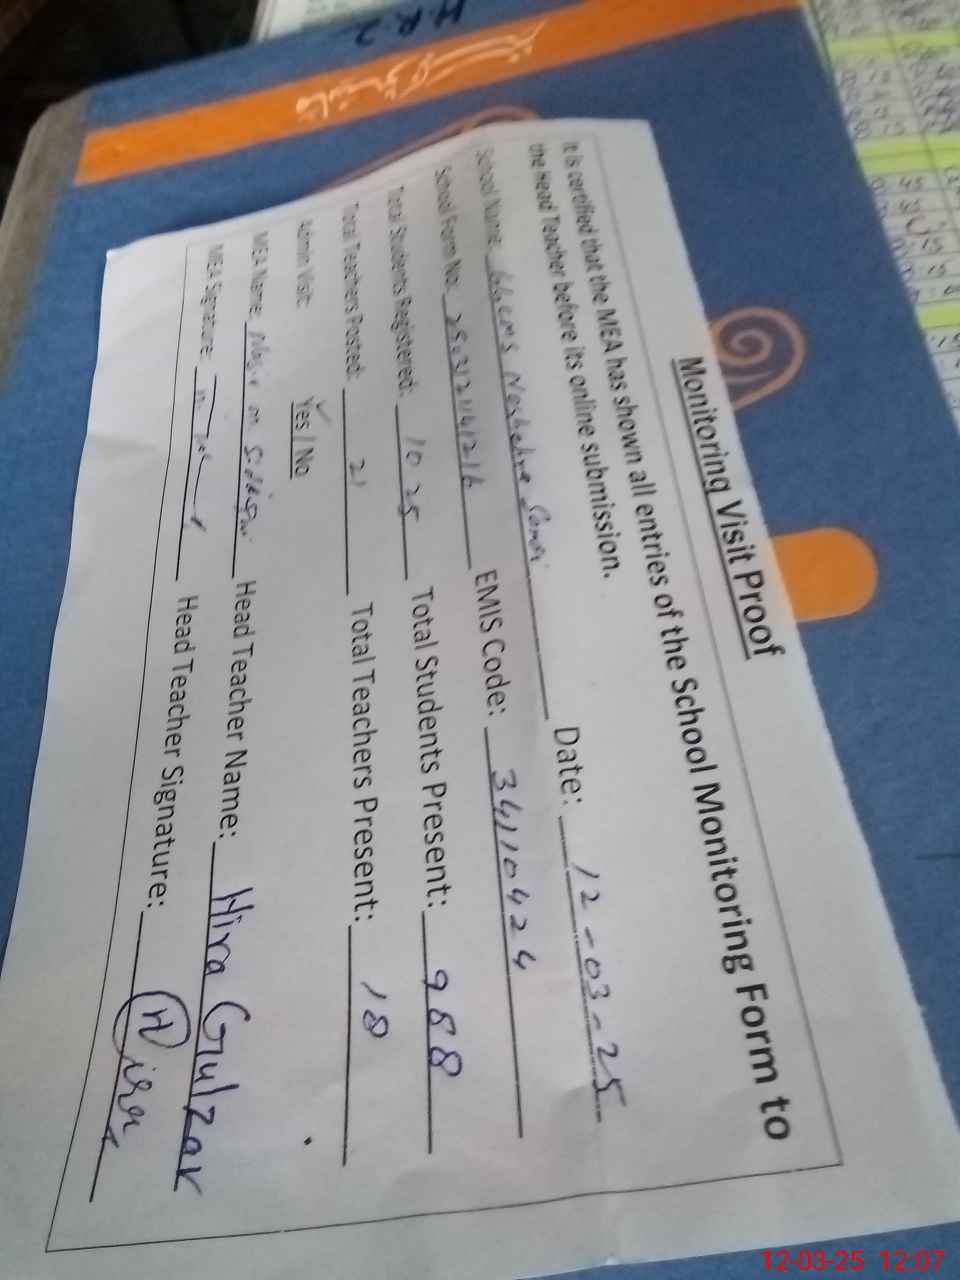 Monitoring Visit Proof
It is certified that the MEA has shown all entries of the School Monitoring Form to
the Head Teacher before its online submission.
School Name: GGCMS Date: 12-03-25
School Form No: EMIS Code: 34110424
Total Students Registered: 1025 Total Students Present: 988
Total Teachers Posted: 21 Total Teachers Present: 18
Admin Visit: Yes / No
MEA Name: Head Teacher Name: Hira Gulzar
MEA Signature: Head Teacher Signature: Hira
12-03-25 12:07